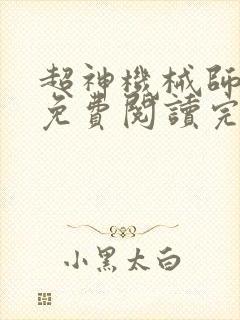 超神機械師
免費閱讀完
小黑太白